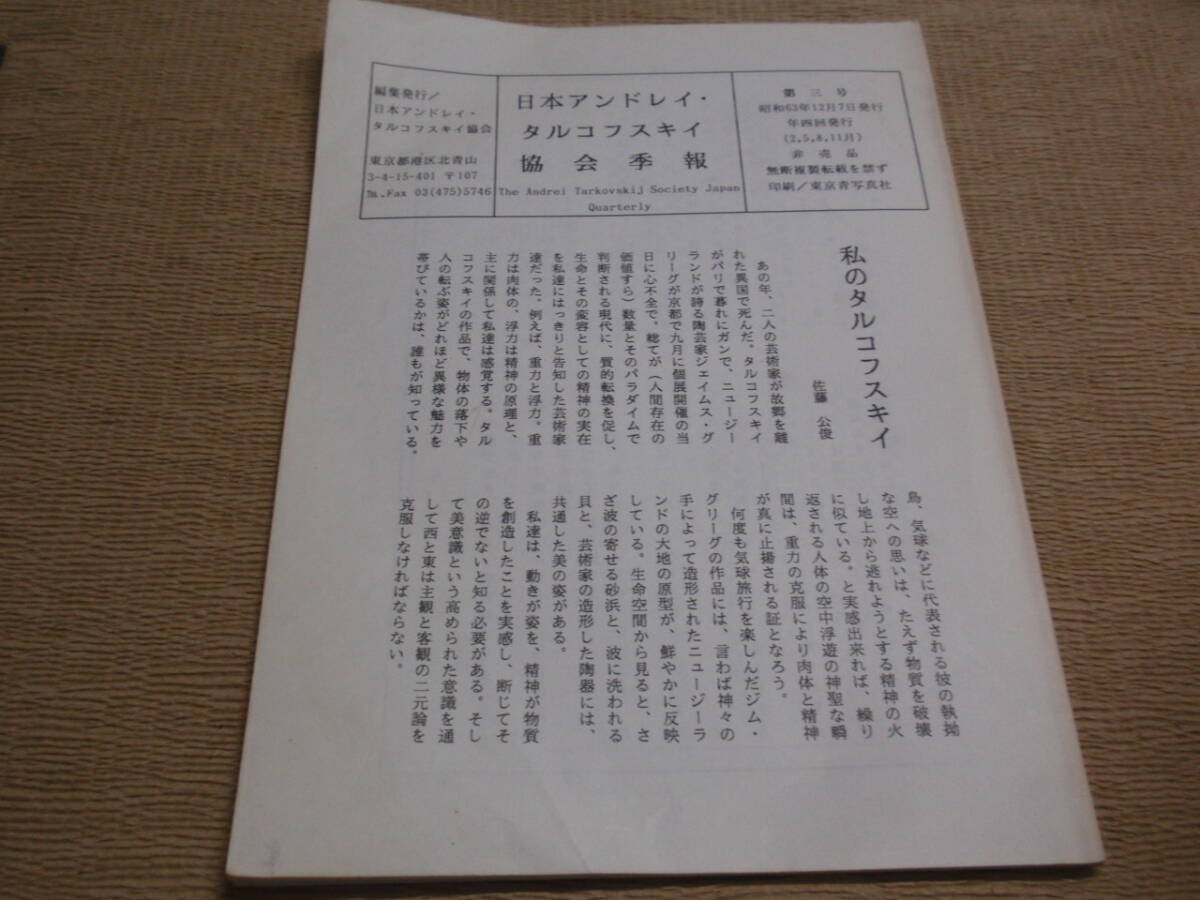 編集発行/
日本アンドレイ・
タルコフスキイ協会
東京都港区北青山
3-4-15-401 〒107
℡.Fax 03(475)5746
日本アンドレイ・
タルコフスキイ
協会季報
The Andrei Tarkovskij Society Japan
Quarterly
第三号
昭和63年12月7日発行
年四回発行
(2,5,8,11月)
非売品
無断複製転載を禁ず
印刷/東京青写真社
私のタルコフスキイ
佐藤 公俊
あの年、二人の芸術家が故郷を離
れた異国で死んだ。タルコフスキイ
がパリで暮れにガンで、ニュージー
ランドが誇る陶芸家ジェイムス・グ
リーグが京都で九月に個展開催の当
日に心不全で。総てが(人間存在の
価値すら)数量とそのパラダイムで
判断される現代に、質的転換を促し、
生命とその変容としての精神の実在
を私達にはっきりと告知した芸術家
達だった。例えば、重力と浮力。重
力は肉体の、浮力は精神の原理と、
主に関係して私達は感覚する。タル
コフスキイの作品で、物体の落下や
人の転ぶ姿がどれほど異様な魅力を
帯びているかは、誰もが知っている。
鳥、気球などに代表される彼の執拗
な空への思いは、たえず物質を破壊
し地上から逃れようとする精神の火
に似ている。と実感出来れば、繰り
返される人体の空中浮遊の神聖な瞬
間は、重力の克服により肉体と精神
が真に止揚される証となろう。
何度も気球旅行を楽しんだジム・
グリーグの作品には、言わば神々の
手によって造形されたニュージーラ
ンドの大地の原型が、鮮やかに反映
している。生命空間から見ると、さ
ざ波の寄せる砂浜と、波に洗われる
貝と、芸術家の造形した陶器には、
共通した美の姿がある。
私達は、動きが姿を、精神が物質
を創造したことを実感し、断じてそ
の逆でないと知る必要がある。そし
て美意識という高められた意識を通
して西と東は主観と客観の二元論を
克服しなければならない。